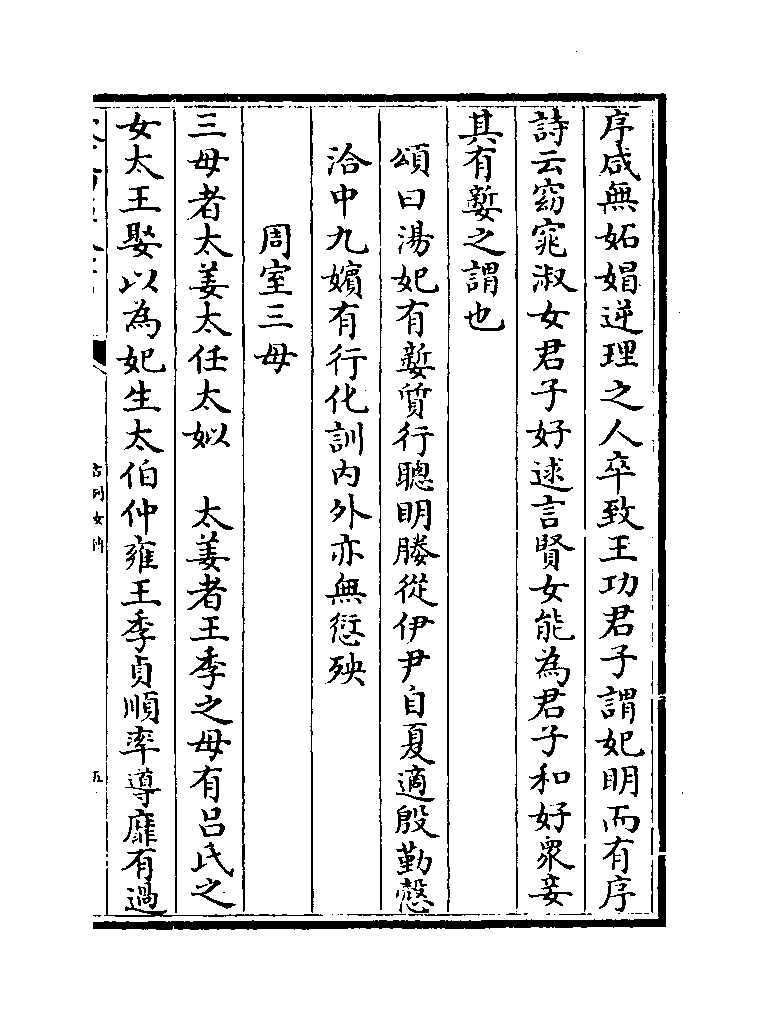 序咸無妬媢逆理之人卒致王功君子謂妃明而有序
詩云窈窕淑女君子好逑言賢女能為君子和好衆妾
其有㜪之謂也
頌曰湯妃有㜪質行聰明媵從伊尹自夏適殷勤慤
治中九嬪有行化訓内外亦無愆殃
周室三母
三母者太姜太任太姒　太姜者王季之母有吕氏之
女太王娶以為妃生太伯仲雍王季貞順率導靡有過
古列女傳
五